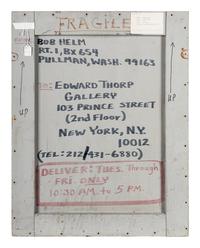 FRAGILE
BOB HELM
RT. 1, BX 654
PULLMAN, WASH. 99163
TO: EDWARD THORP
GALLERY
103 PRINCE STREET
(2nd FLOOR)
NEW YORK, N.Y.
10012
(TEL: 212/431-6880)
DELIVER: TUES. Through
FRI. ONLY
10:30 AM. to 5 PM.
UP
UP